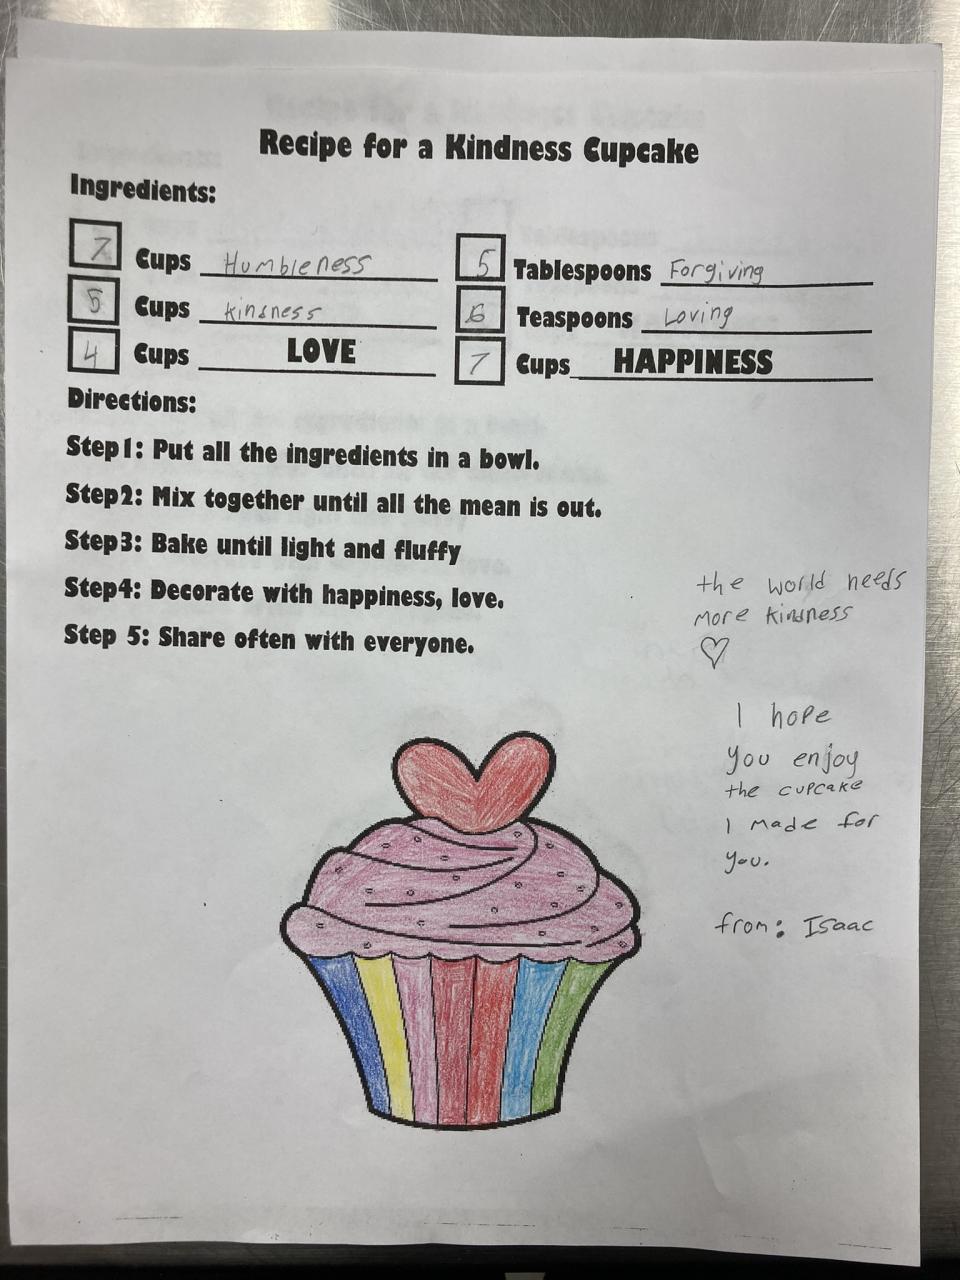 Recipe for a Kindness Cupcake
Ingredients:
7 Cups Humbleness
5 Cups kinsness
4 Cups LOVE
5 Tablespoons Forgiving
6 Teaspoons Loving
7 Cups HAPPINESS
Directions:
Step1: Put all the ingredients in a bowl.
Step2: Mix together until all the mean is out.
Step3: Bake until light and fluffy
Step4: Decorate with happiness, love.
Step 5: Share often with everyone.
the world needs
more kindness
I hope
you enjoy
the cupcake
I made for
you.
from: Isaac